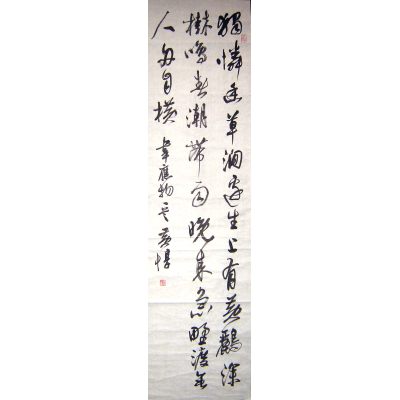 獨憐幽草澗邊生上有黃鸝深
樹鳴春潮帶雨晚來急野渡無
人舟自橫 韋應物 黃惇